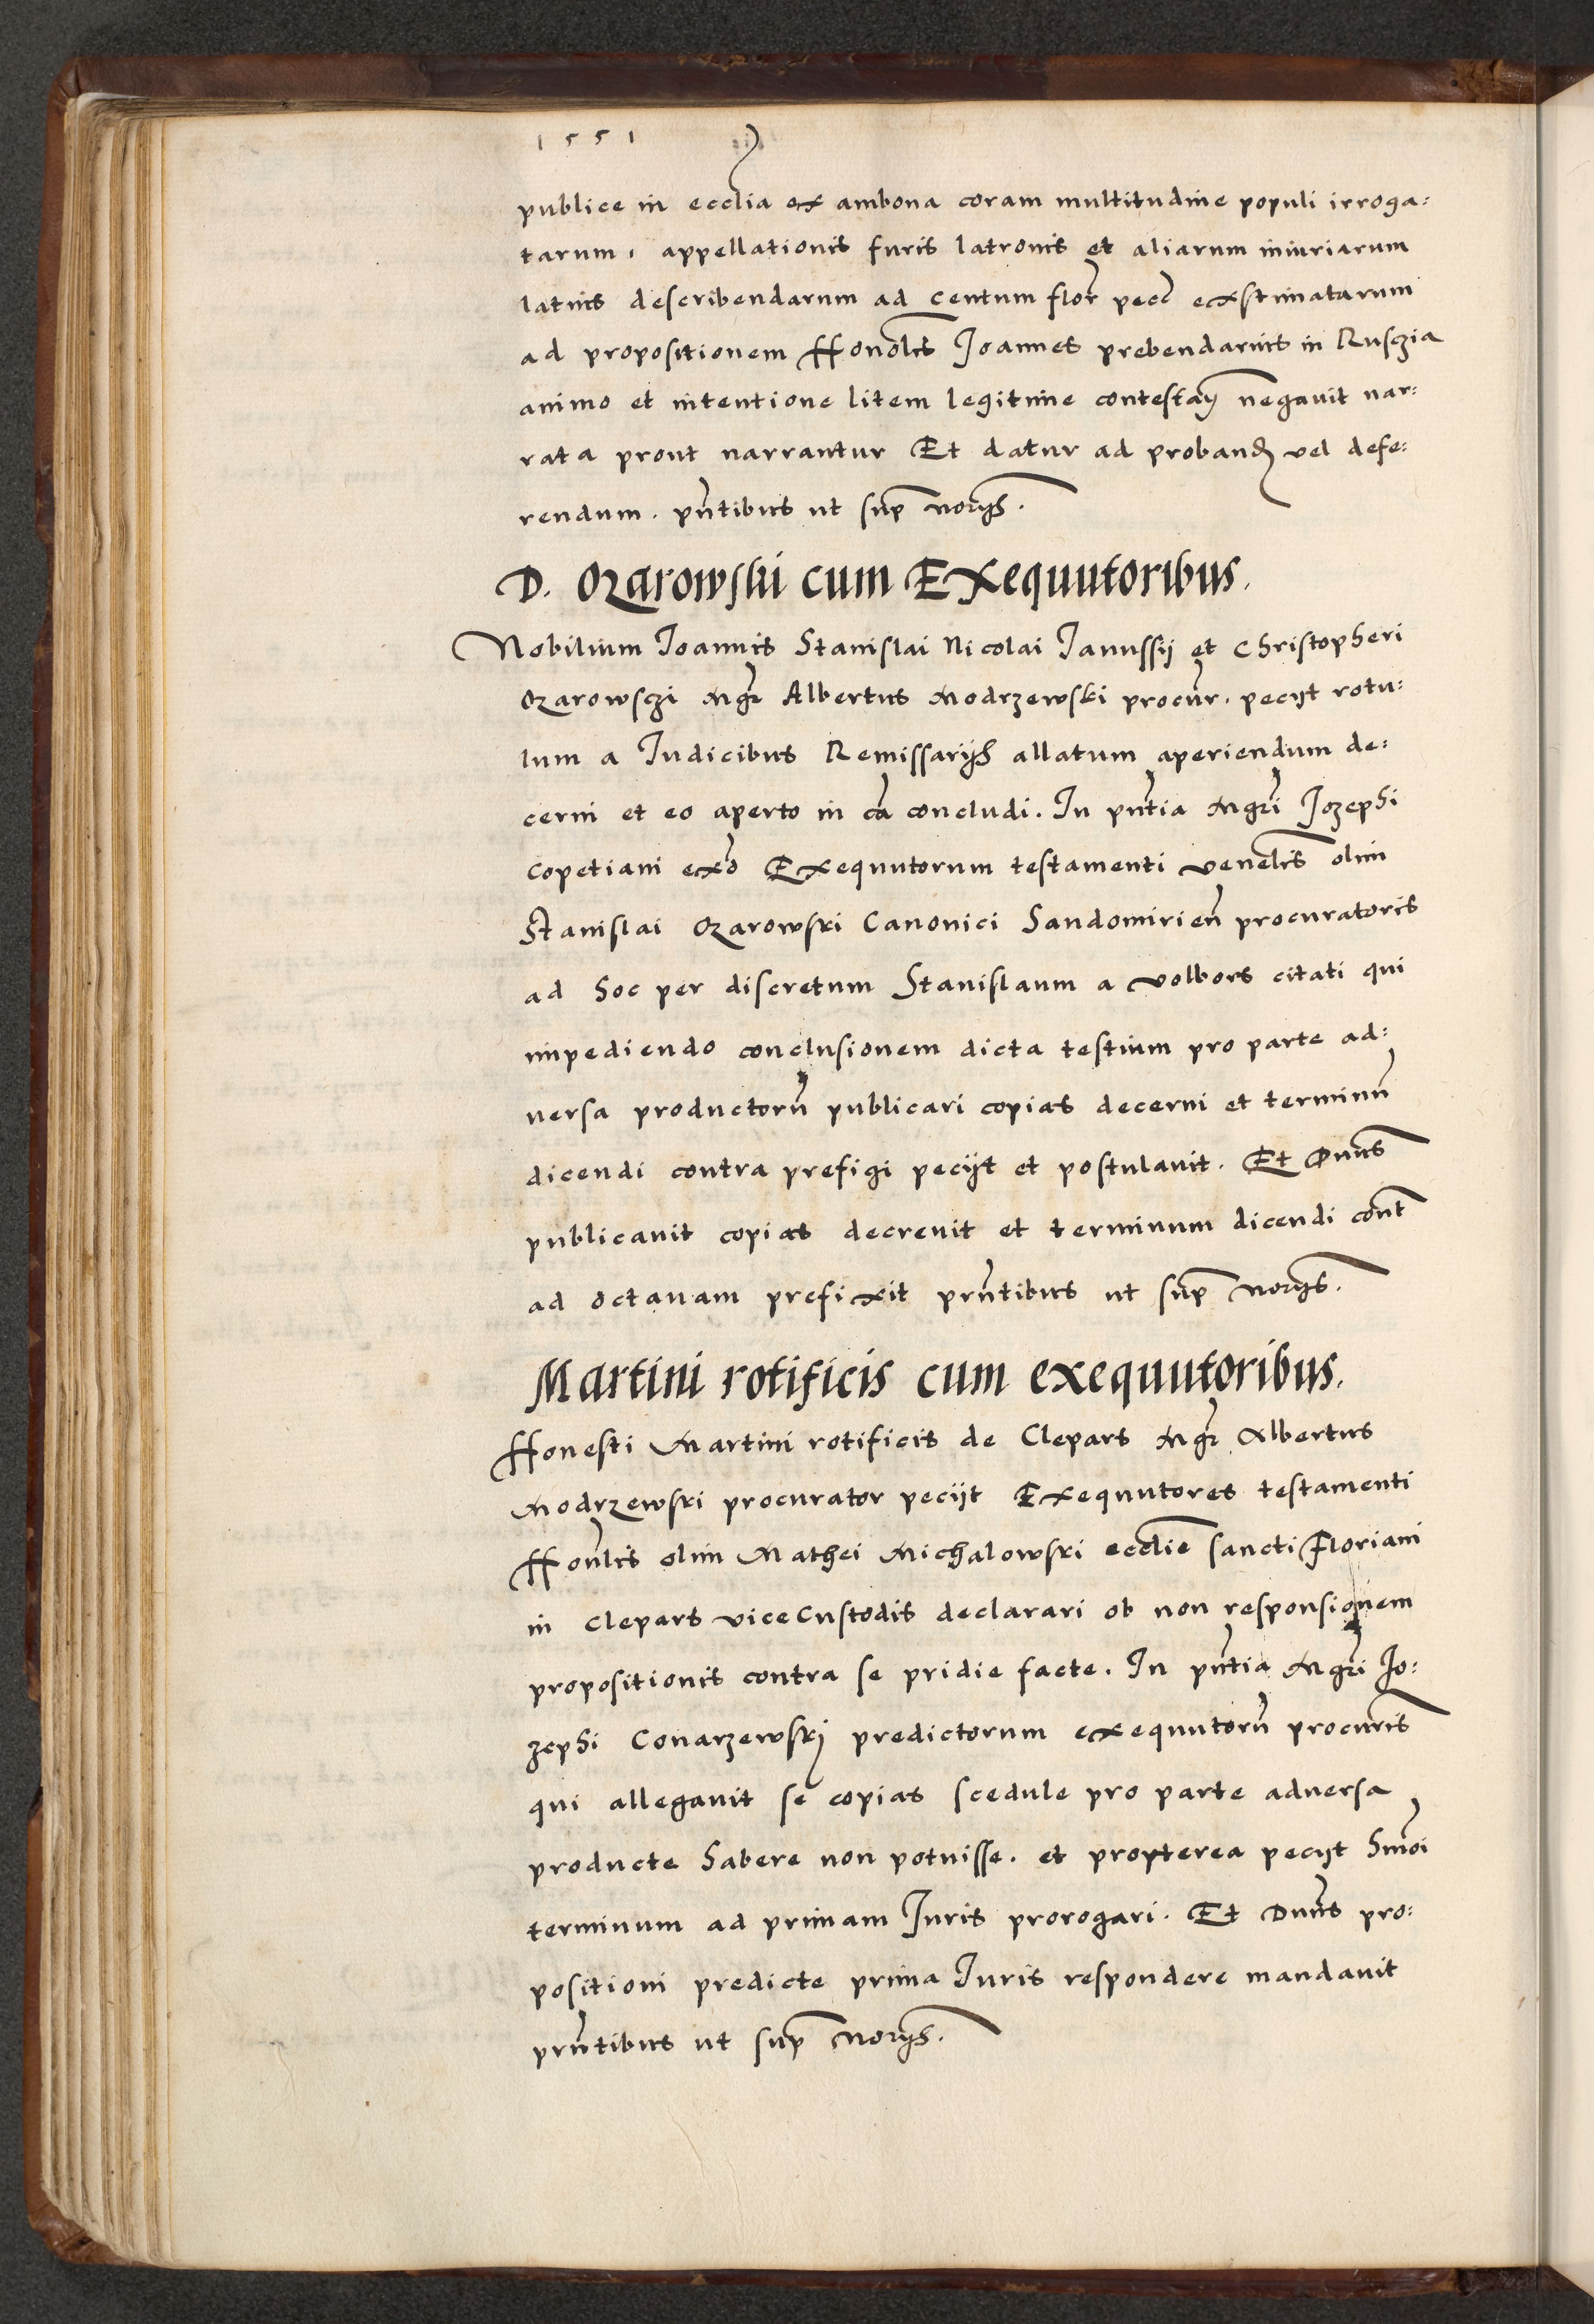 1551
publice in ecclia ex ambona coram multitudine populi irroga:
tarum, appellationis furis latronis et aliarum iniuriarum
latius describendarum ad centum flor pecc exstimatarum
ad propositionem Honoblis Joannes prebendarius in Rusczia
animo et intentione litem legitime contestan negauit nar:
rata prout narrantur Et datur ad proband vel defe:
rendum. pntibus ut sup norijs.
D. Ozarowski cum Exequutoribus.
Nobilium Joannis Stanislai Nicolai Janussij et Christopheri
Ozarowsczi Mgr Albertus Modrzewski procur. pecijt rotu:
lum a Judicibus Remissarijs allatum aperiendum de:
cerni et eo aperto in ca concludi. In pntia Mgri Jozephi
Copetiani exo Exequutorum testamenti venelis olim
Stanislai Ozarowski Canonici Sandomirien procuratoris
ad hoc per discretum Stanislaum a Volbors citati qui
impediendo conclusionem dicta testium pro parte ad:
uersa productoru publicari copias decerni et terminu
dicendi contra prefigi pecijt et postulauit. Et Dnus
publicauit copias decreuit et terminum dicendi cont
ad octauam prefixit prntibus ut sup norijs.
Martini rotificis cum exequutoribus.
Honesti Martini rotificis de Clepars Mgr Albertus
Modrzewski procurator pecijt Exequutores testamenti
Honlis olim Mathei Michalowski ecclie sancti Floriani
in Clepars viceCustodis declarari ob non responsionem
propositionis contra se pridie facte. In pntia Mgri Jo:
zephi Conarzewskj predictorum exequutoru procuris
qui allegauit se copias scedule pro parte aduersa
producte habere non potuisse. et propterea pecijt hmoi
terminum ad primam Juris prorogari. Et Dnus pro:
positioni predicte prima Juris respondere mandauit
prntibus ut sup norijs.